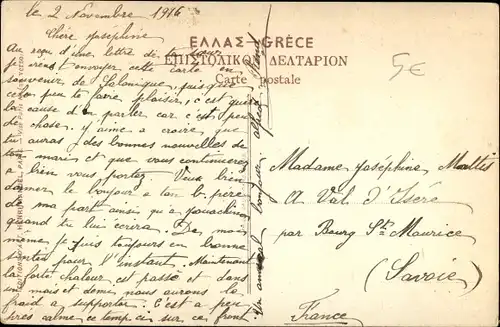 le 2 Novembre 1916
Chère Joséphine
Au reçu d'une lettre de ta sœur
je viens t'envoyer cette carte en
souvenir de Salonique, puisque
cela peu te faire plaisir, c'est guère
la cause d'en parler car c'est peu
de chose, y aime a croire que
tu auras des bonnes nouvelles de
ton mari et que vous continuerez
a bien vous portez. Veux bien
donner le bonjour a ton b. père
de ma part ainsi qu a
quand tu lui ecrira. De moi
même je suis toujours en bonne
santée pour l'instant. Maintenant
la forte chaleur est passé et dans
un mois et demi nous aurons le
froid a supporter. C'est a peu
près calme ce temp ci sur ce front
Un amical bonjour
ΕΛΛΑΣ-GRÈCE
ΕΠΙΣΤΟΛΙΚΟΝ ΔΕΛΤΑΡΙΟΝ
Carte postale
5€
Madame Joséphine Mattis
A Val d'Isère
par Bourg St Maurice
(Savoie)
France